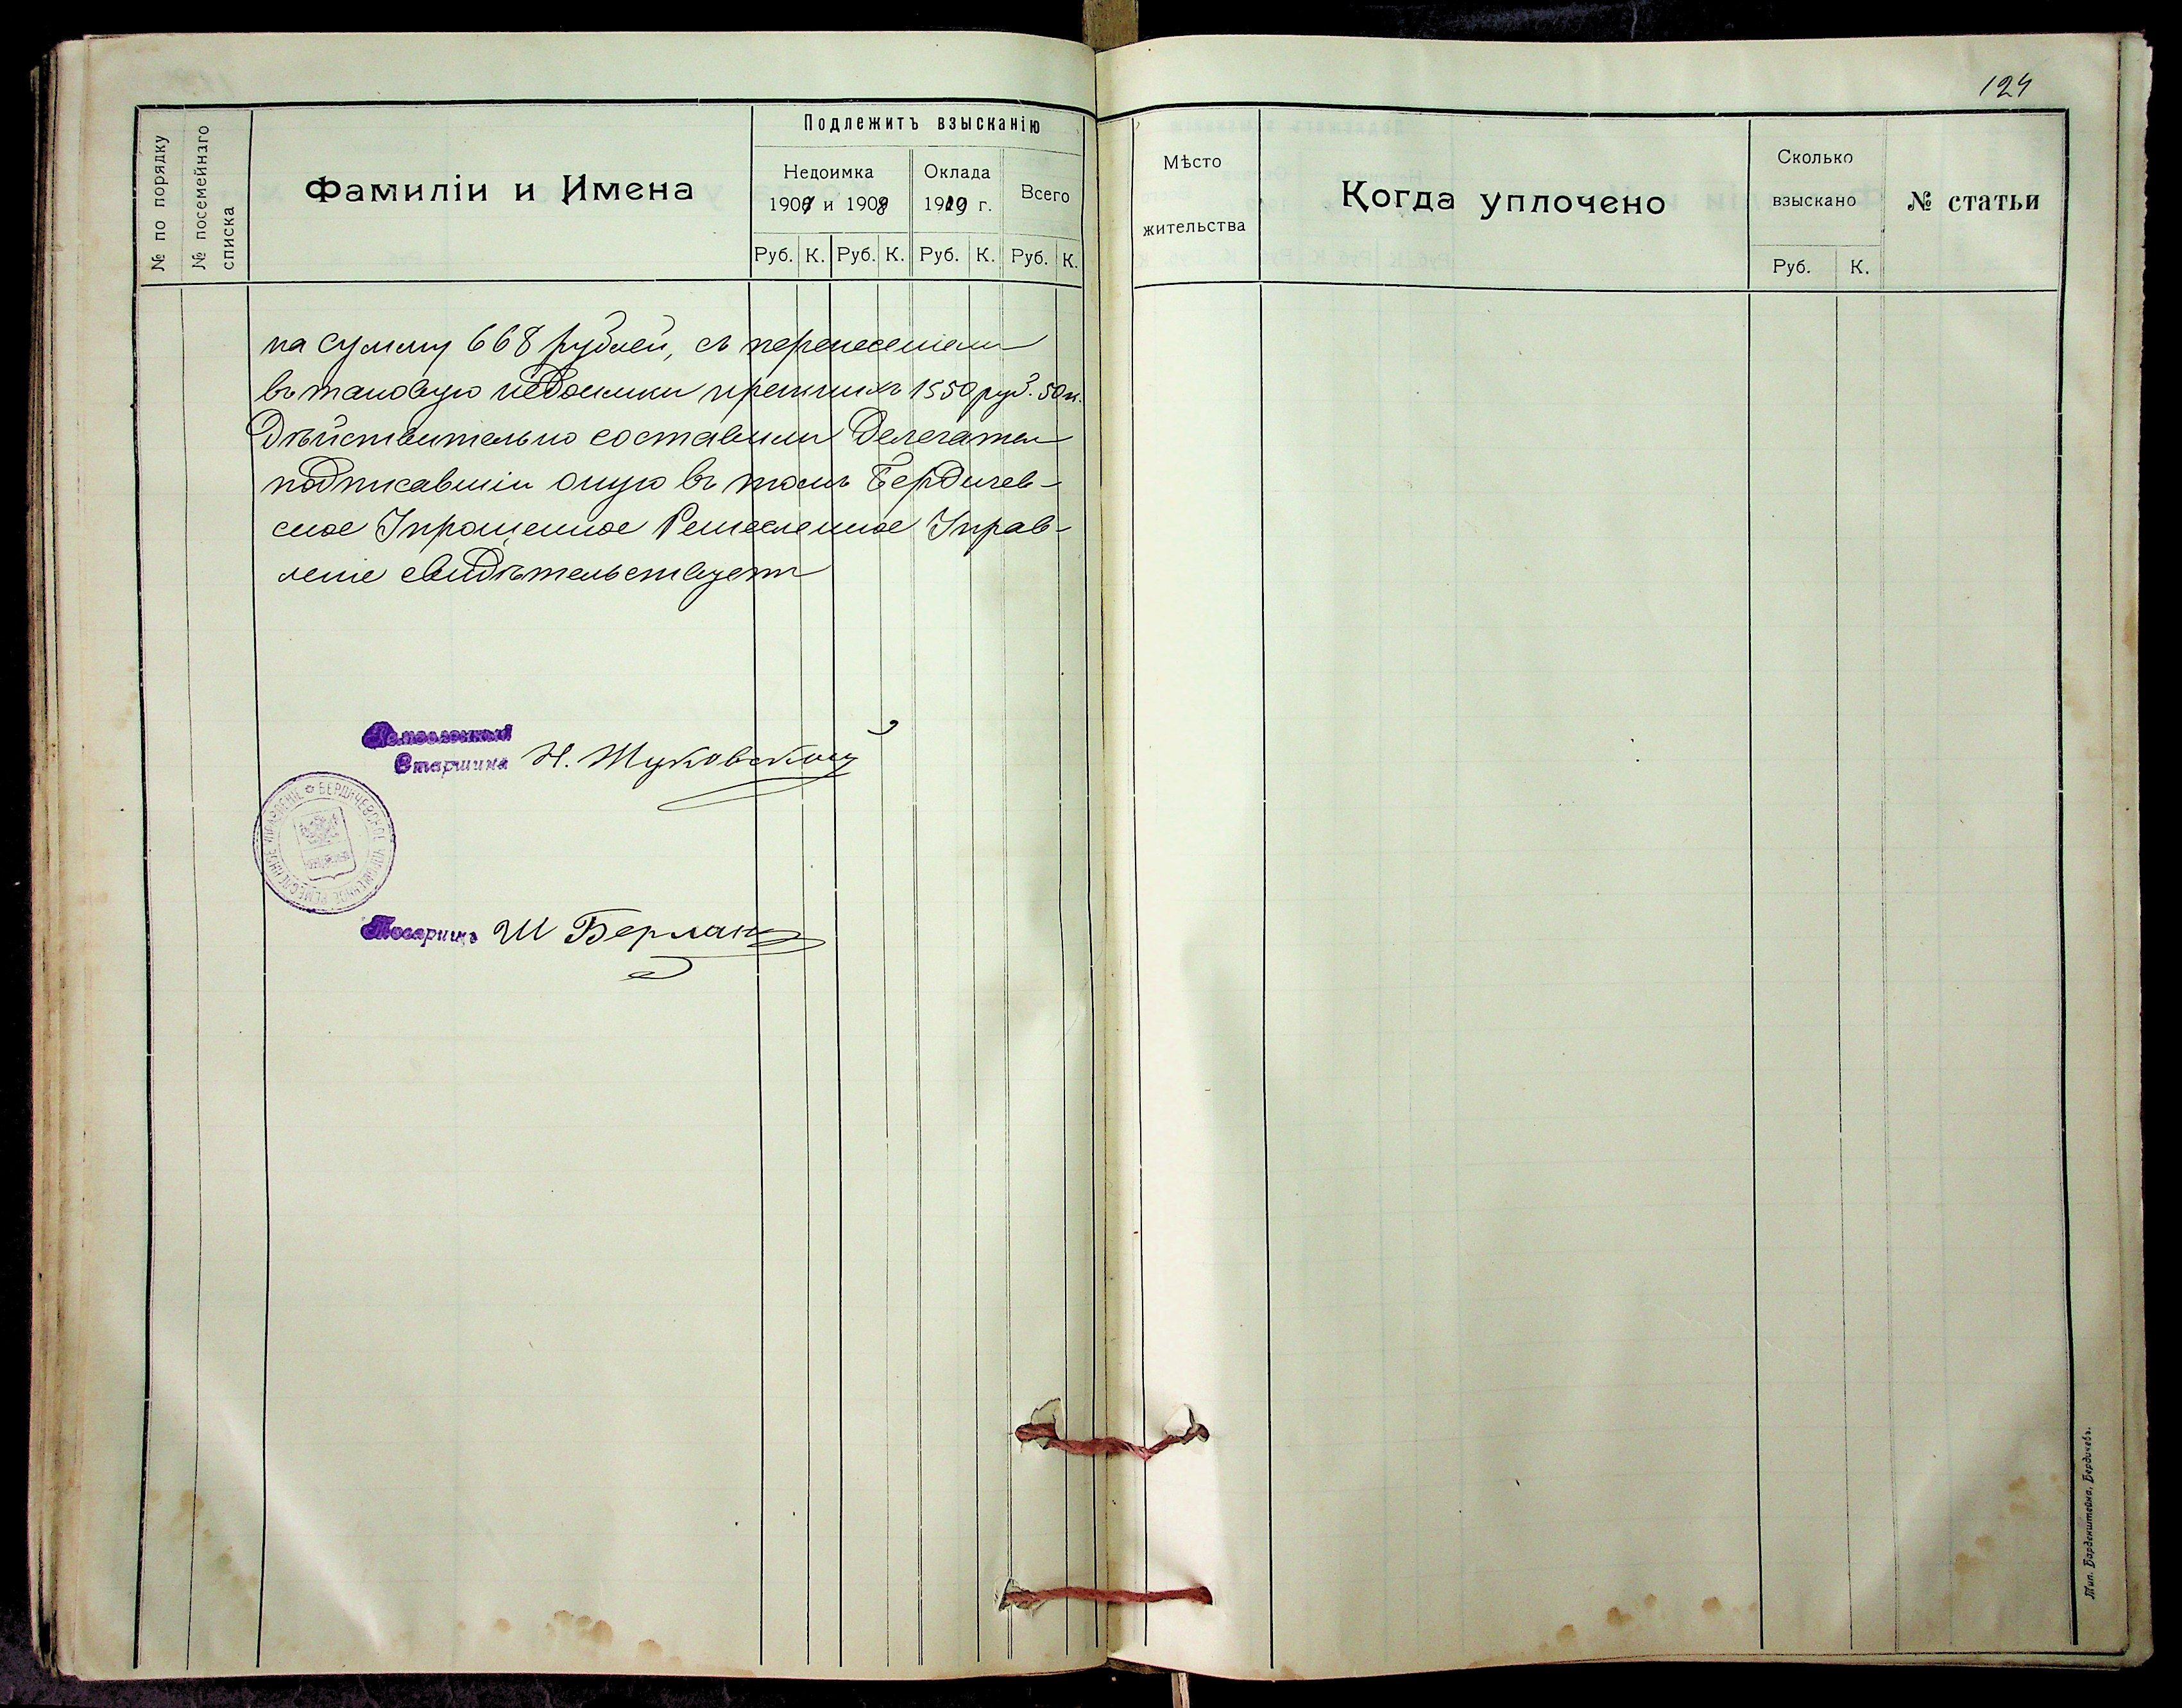 124
№ по порядку
№ посемейнаго
списка
Фамиліи и Имена
Подлежитъ взысканію
Недоимка
1907 и 1908
Оклада
1909 г.
Всего
Руб. К. Руб. К. Руб. К. Руб. К.
Мѣсто
жительства
Когда уплочено
Сколько
взыскано
Руб. К.
№ статьи
на сумму 668 рублей, съ перенесеніемъ
въ таковую недоимки прежнихъ 1550 руб. 50 к.
Дѣйствительно составили Делегаты
подписавшіи оную въ томъ Бердичев-
ское Упрощенное Ремесленное Управ-
леніе свидѣтельствуетъ
Ремесленный
Старшина Н. Жуковскій
БЕРДИЧЕВСКОЕ УПРОЩЕННОЕ РЕМЕСЛЕННОЕ УПРАВЛЕНІЕ
Товарищъ Ш Берман
Тип. Барденштейна, Бердичевъ.